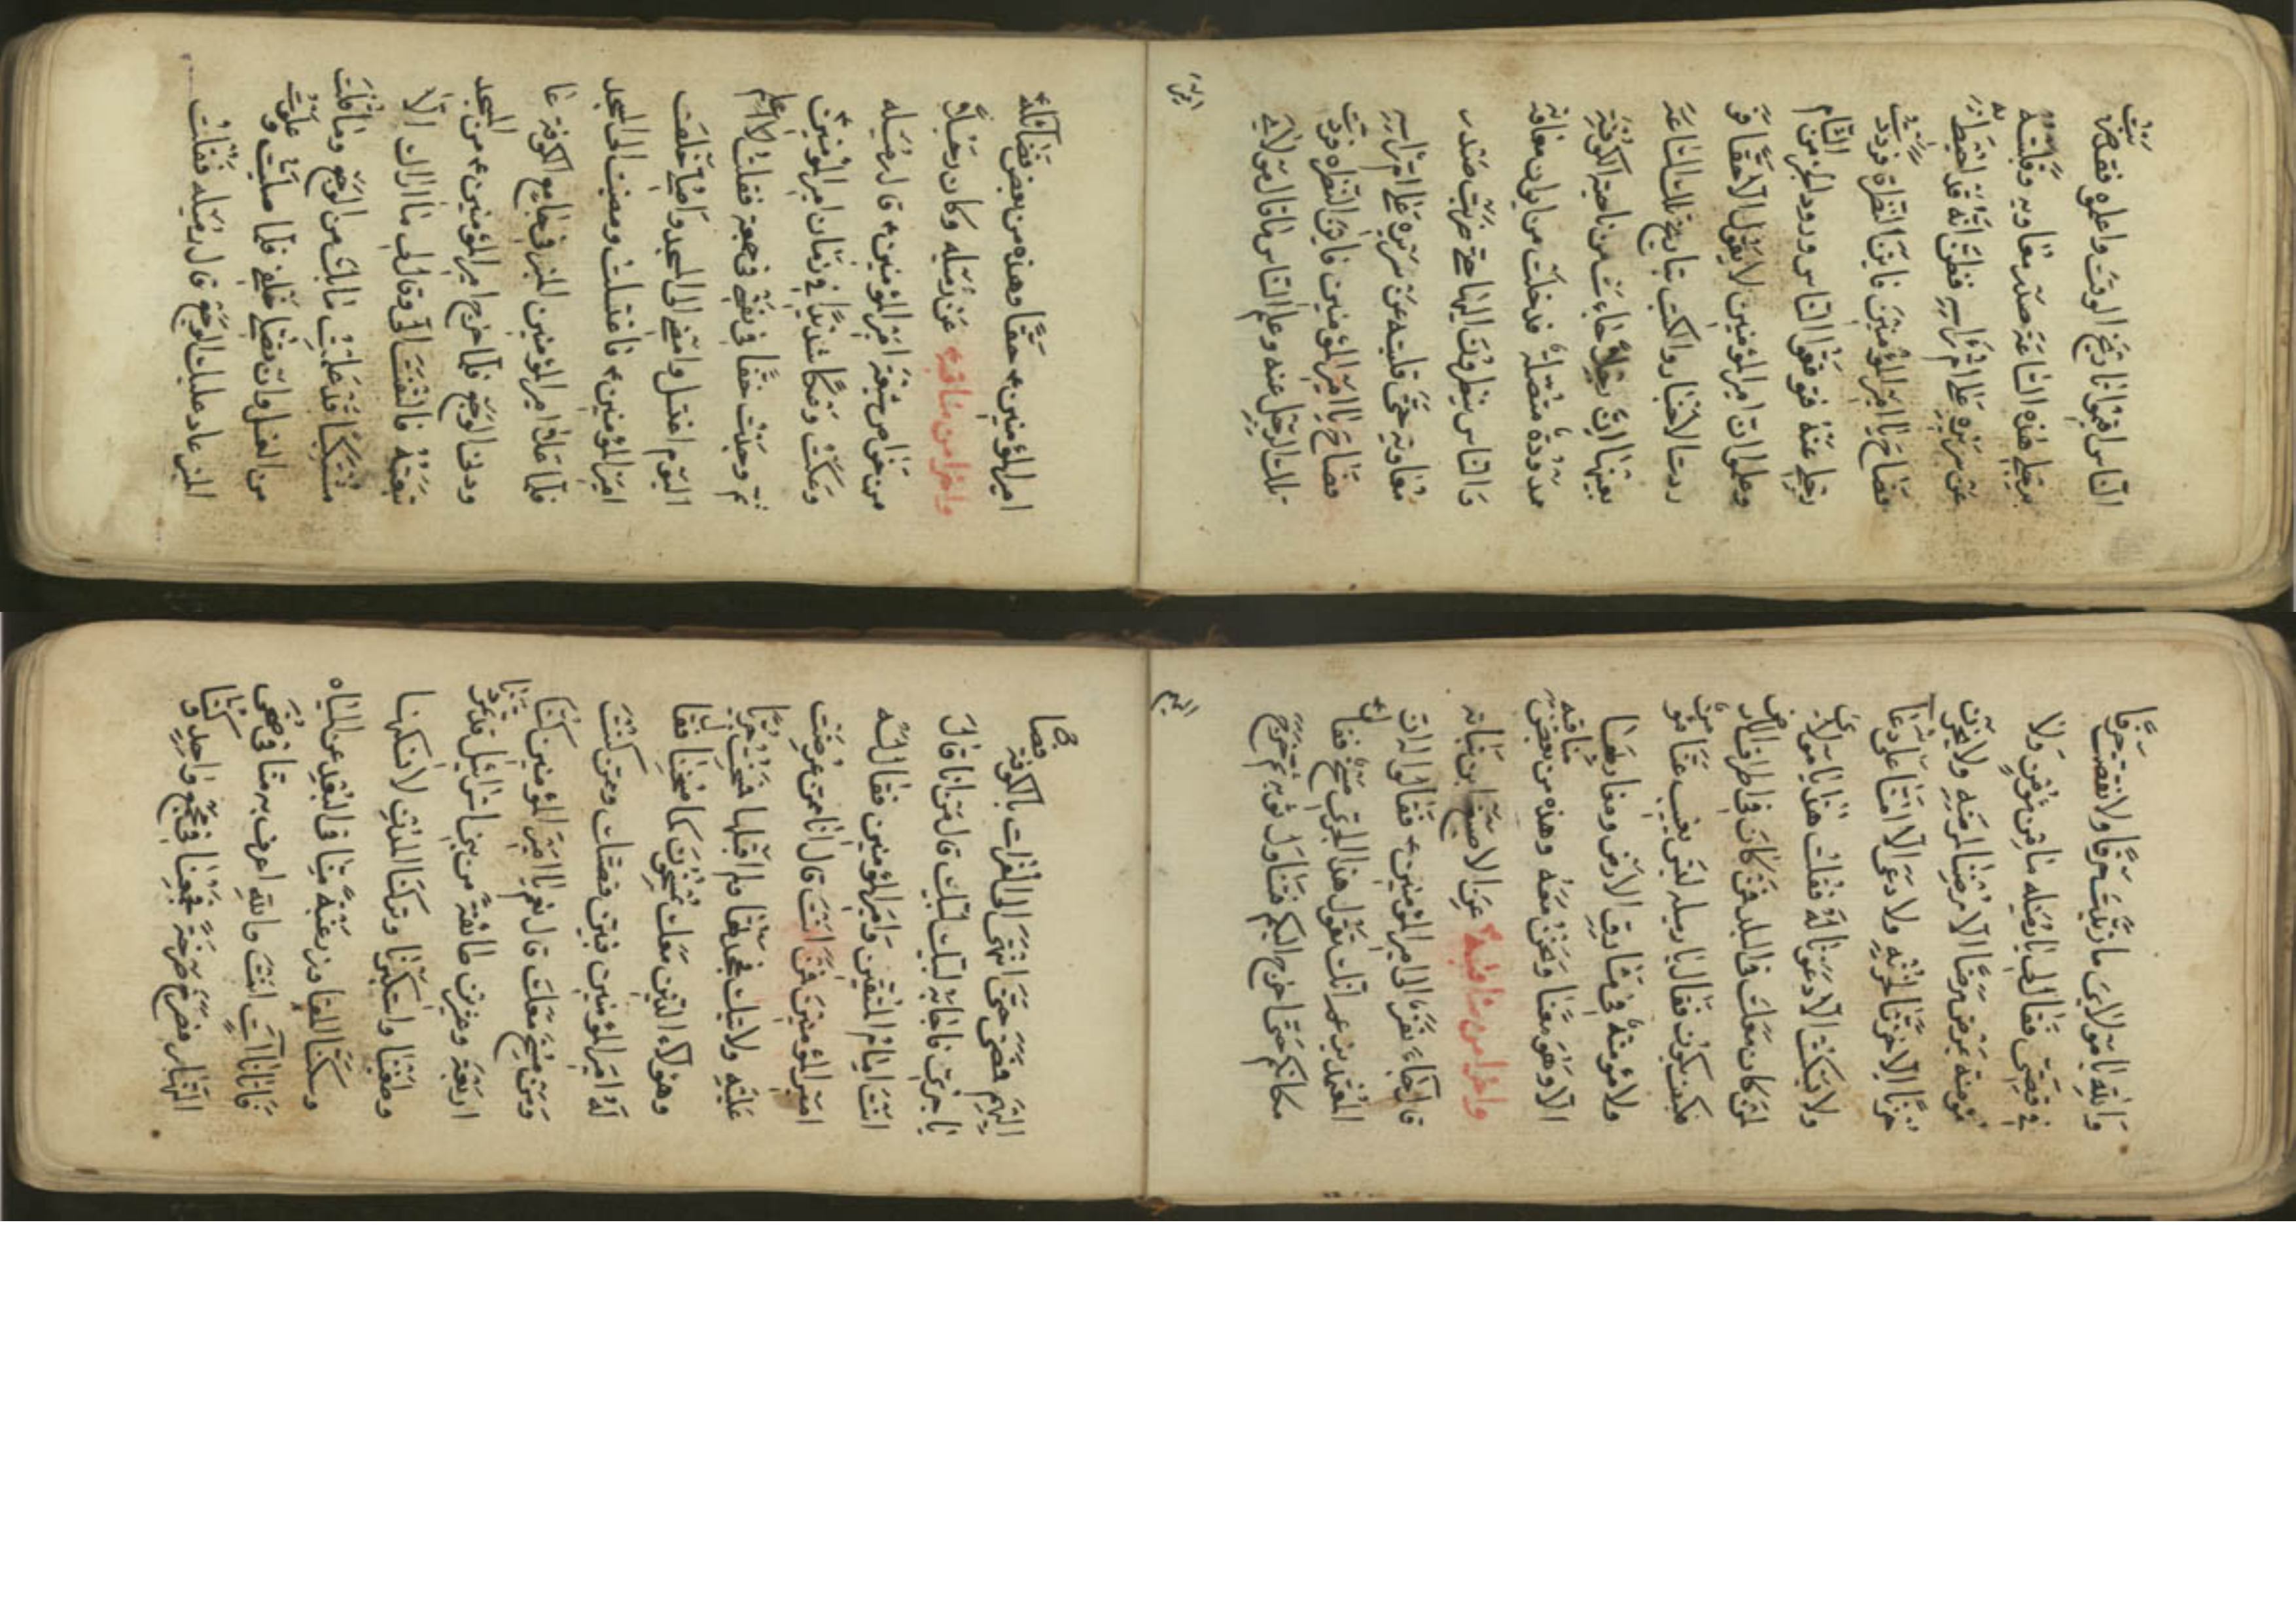 الناس اقيموا تاريخ الوقت واعلموه فقد ضربت
يد علي هذه الساعة صدر معاوية وقلبته
عن سريره علي ام راسه فظن انه قد احيط به
فصاح يا امير المؤمنين فاين النظرة فرددت
يدي عنه فتوقعوا الناس ورود الخبر من الشام
وعلموا ان امير المؤمنين لا يقول الا حقا فو
ردت الاخبار والكتب بتاريخ تلك الساعة
بعينها ان رجلا جاءت من ناحية الكوفة
ممدودة متصلة فدخلت من ايوان معاوية
والناس ينظرون اليها حتي ضربت صدر
معاوية حتي قلبته عن سريره علي ام راسه
فصاح يا امير المؤمنين فاين النظره فردت
تلك الرجل عنه وعلم الناس ما قال مولاي
امير المؤمنين ء حقا وهذه من بعض فضائله
واخرا من مناقبه عن رميله وكان رجلا
من خواص شيعة امير المؤمنين ء قال رميله
وعكت وعكا شديدا في زمان امير المؤمنين
ثم وجدت خفا في نفسي في جمعة فقلت لا اعلم
اليوم اغتسل وامضي الي المسجد واصلي خلف
امير المؤمنين ء فاغتسلت ومضيت الي المسجد
فلما علا امير المؤمنين المنبر في جامع الكوفة عا
ودني الوجع فلما خرج امير المؤمنين ء من المسجد
تبعته فالتفت الي وقال لي ما اراك الا
مشتكيا قد علمت ما بك من الوجع وما قلت
من الغسل وان تصلي خلفي فلما صليت وعلوت
المنبر عاد عليك الوجع قال رميله فقلت
والله يا مولاي ما زدت حرفا ولا نقصت حرفا
في قصتي فقال لي يا رميله ما من مؤمن ولا
مؤمنة يمرض مرضا الا مرضنا لمرضه ولا يحزن
حزنا الا حزنا لحزنه ولا دعي الا امنا علي دعائه
ولا يسكت الا دعونا له فقلت هذا يا مولاي
لمن كان معك في البلد فمن كان في اطراف الارض
فكيف يكون فقال يا رميله ليس يغيب عنا مؤمن
ولا مؤمنة في مشارق الارض ومغاربها
الا وهو معنا ونحن معه وهذه من بعض مناقبه
واخرا من مناقبه عن الاصبغ بن نباته
قال جاء نفر الي امير المؤمنين ء فقالوا له ان
المعتمد يزعم انك تقول هذا الجري مسخ فقال
مكانكم حتي اخرج اليكم فتناول ثوبه ثم خرج
اليهم فمضي حتي انتهي الي الفرات بالكوفة فصاح
يا جري فاجابه لبيك لبيك قال من انا قال
انت امام المتقين وامير المؤمنين فقال له
امير المؤمنين فمن انت قال انا ممن عرضت
عليه ولايتك فجحدها ولم اقبلها فمسخت جريا
وهؤلاء الذين معك يمسخون كما مسخنا فقال
له امير المؤمنين فبين قصتك وممن كنت
ومن مسخ معك قال نعم يا امير المؤمنين كنا
اربعة وعشرين طائفة من بني اسرائيل قد تمردنا
وطغينا واستكبرنا وتركنا المدن لا نسكنها
وسكنا الفيافي رغبة منا في البعد عن المياه
فاتانا آت انت والله اعرف به منا في ضحي
النهار فصرخ صرخة فجمعنا في مجمع واحد وكنا